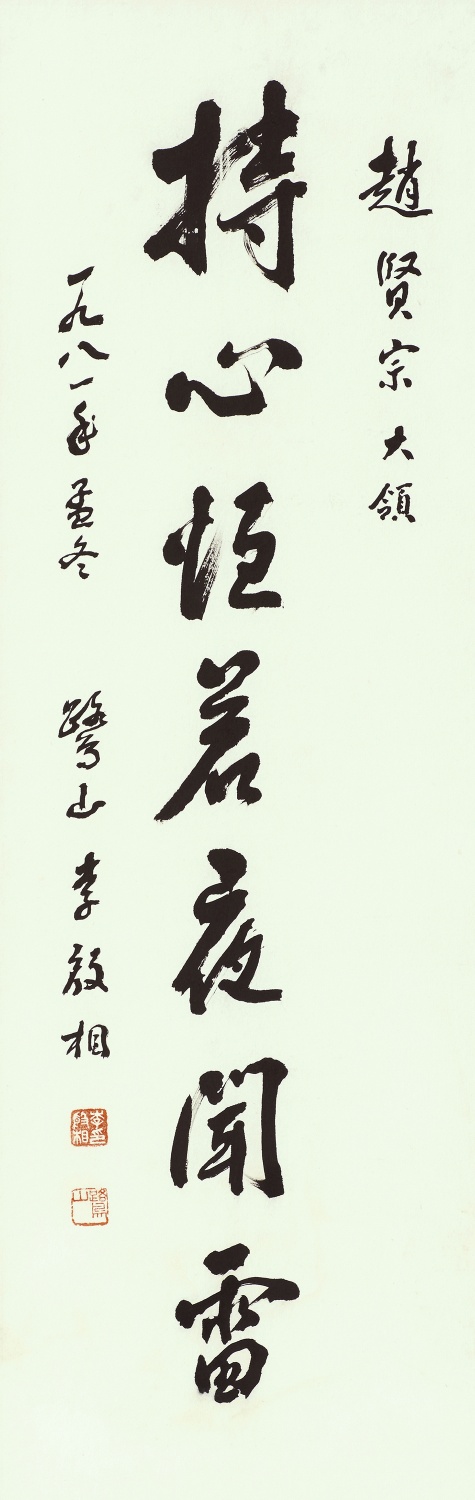 趙賢宗大領
持心恒若夜聞雷
一九八一年孟冬 鷺山 李殷相
李殷相印
鷺山